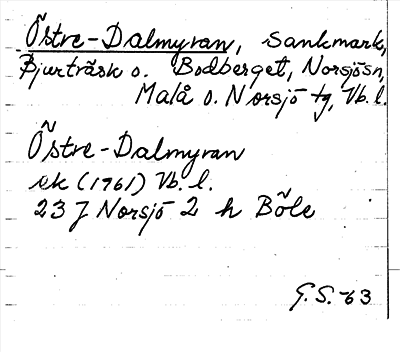 Östre-Dalmyran, sankmark,
Bjurträsk o. Bodberget, Norsjösn,
Malå o. Norsjö tg, Vb. l.
Östre-Dalmyran
ek (1961) Vb. l.
23 J Norsjö 2 h Böle
G.S. -63